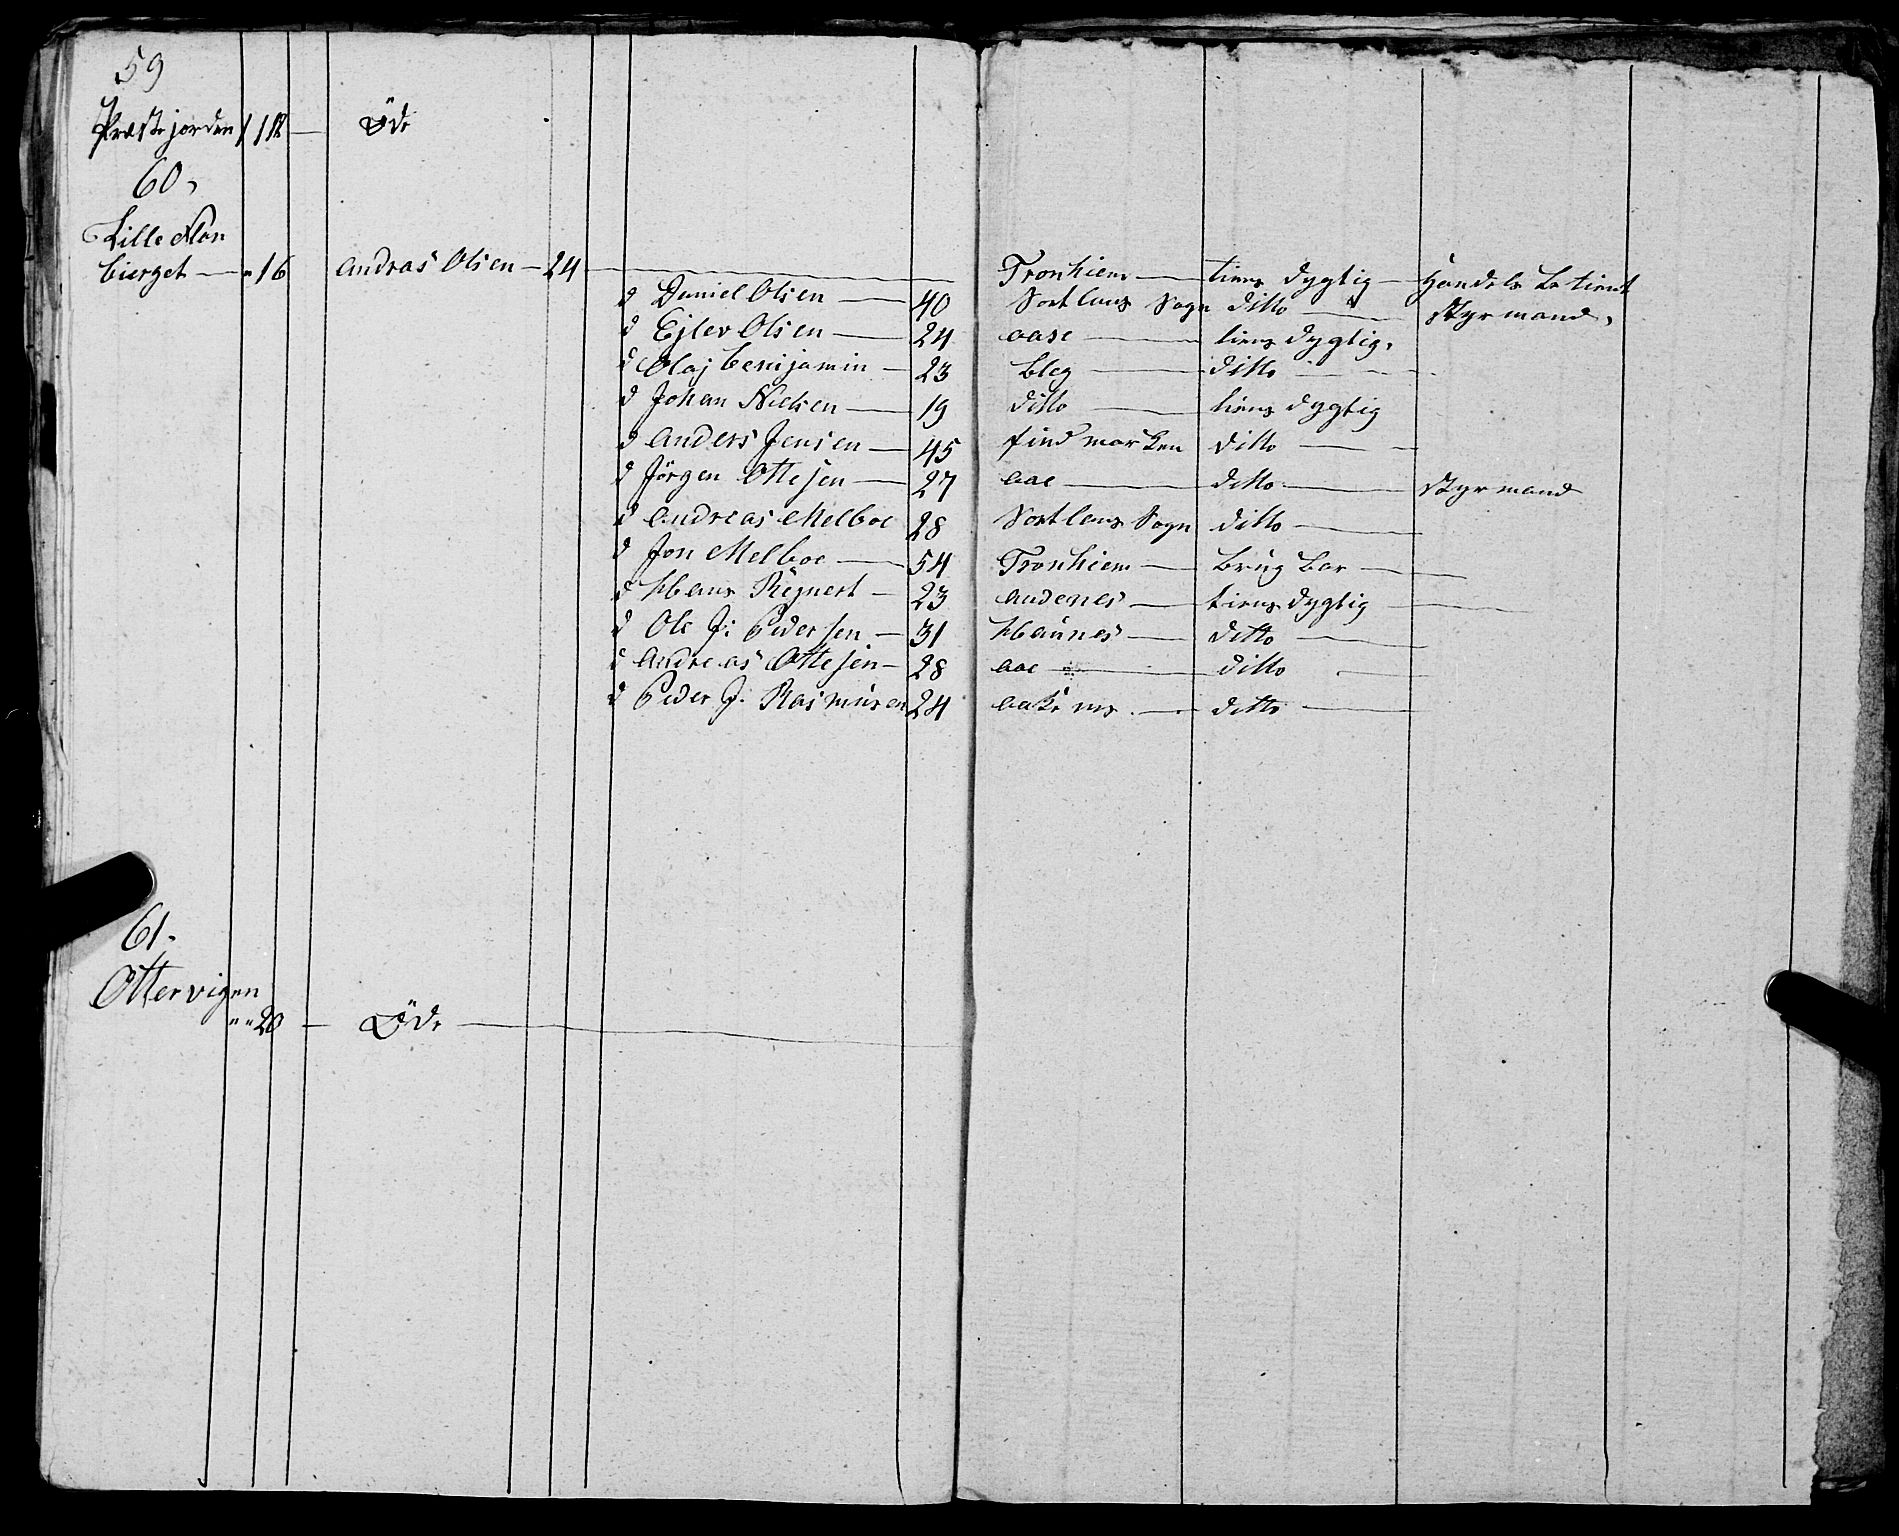 59
Præstejorden 1 1 12 — Øde
60,
Lille Aan
bierget — " 16 Andras Olsen — 24 — Tronhiem — tiens dygtig — Handels betient
d Daniel Olsen — 40 Sortlans Sogn ditto — Styrmand,
d Ejlev Olsen — 24 aase — tiens dygtig,
d Olaj Benijamin — 23 Bleg — ditto —
d Johan Nielsen — 19 ditto — tiens dygtig
d Anders Jensen — 45 findmarken ditto —
d Jörgen Ottesen — 27 aae — ditto — Styrmand
d Andreas Melboe 28 Sortlans Sogn ditto —
d Jon Melboe — 54 Tronhiem — brugbar —
d Hans Regnert — 23 Andenes — tiens dygtig —
d Ole J: Pedersen — 31 Haünes — ditto —
d Andreas Ottesen — 28 aae — ditto —
d Peder J. Rasmüsen 24 — ditto —
61.
Ottervigen
" " 20 — Øde —